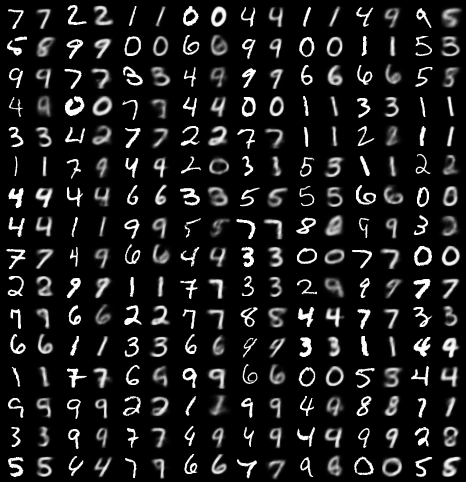 7 7 2 2 1 1 0 0 4 4 1 1 4 9 9
5 8 9 9 0 0 6 6 9 9 0 0 1 1 5 5
9 9 7 7 3 3 4 9 9 9 6 6 6 6 5
4 9 0 0 7 7 4 4 0 0 1 1 3 3 1 1
3 3 4 2 7 7 2 2 7 7 1 1 2 2 1 1
1 1 7 9 4 9 2 0 3 3 5 5 1 1 2 2
4 4 4 4 6 6 3 3 5 5 5 5 6 6 0 0
4 4 1 1 9 9 5 7 7 8 8 9 9 3
7 7 4 9 6 6 4 4 3 3 0 0 7 7 0 0
2 2 9 9 1 1 7 7 3 3 2 9 9 9 7 7
7 9 6 6 2 2 7 7 8 8 4 4 7 7 3 3
6 6 1 1 3 3 6 6 9 9 3 3 1 1 4 4
1 1 7 7 6 6 9 9 6 6 0 0 5 3 4 4
9 9 9 9 2 2 1 1 9 9 4 9 8 8 7 7
3 3 9 9 7 7 4 9 4 9 4 4 9 9 2 8
5 5 4 4 7 9 6 6 7 7 9 6 0 0 5 5